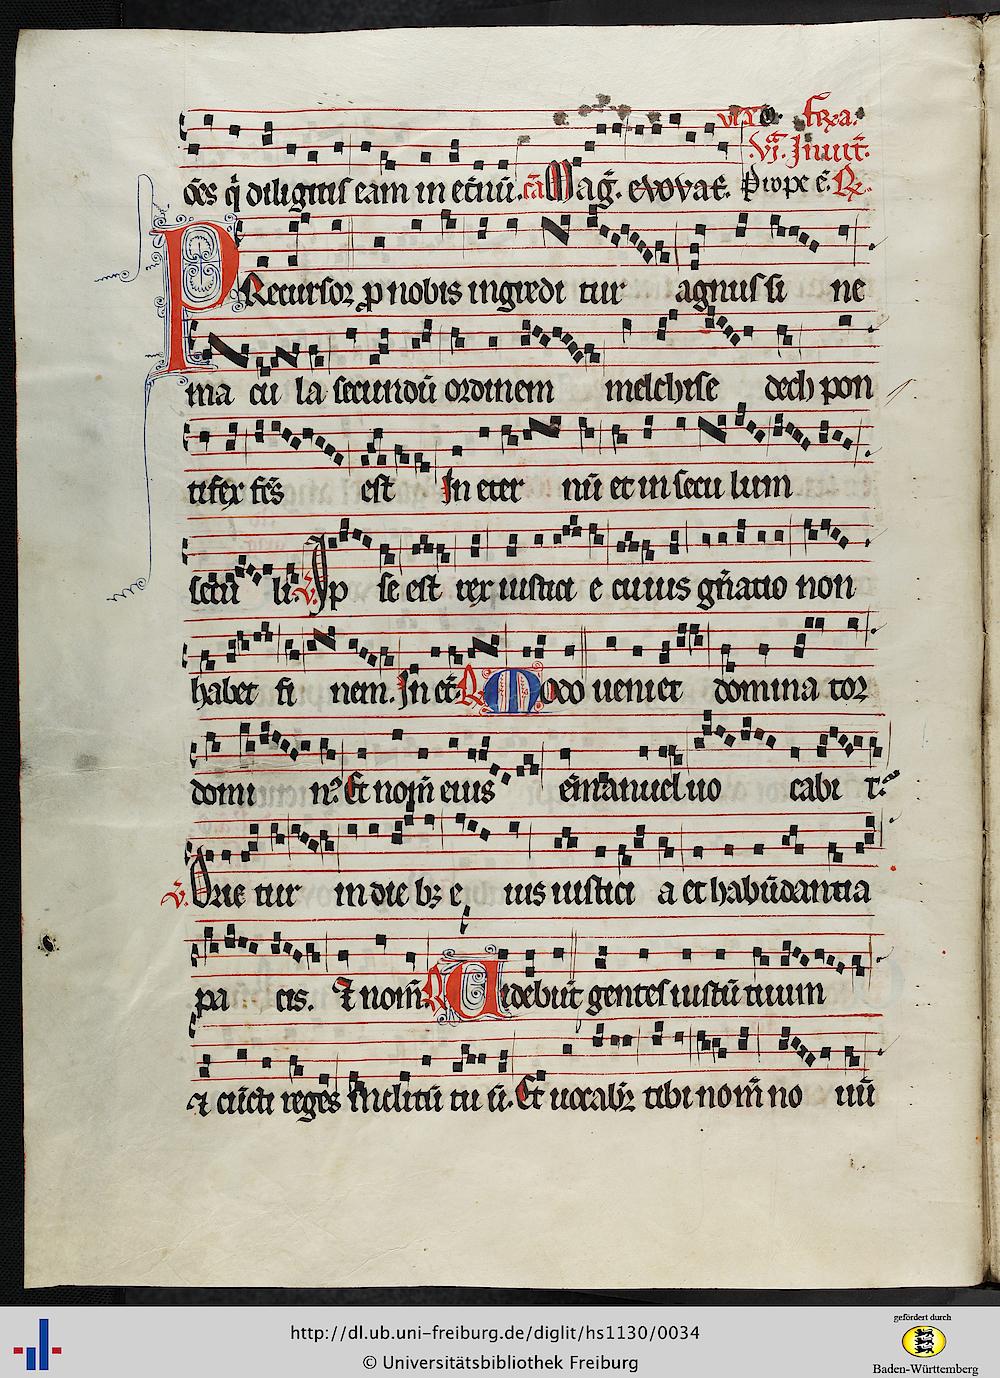 fr̄xa.
.vi. Inuit̄.
o͞es q̄ diligitis eam in et̄nū. cā Mag̅. evovae. Prope ē. R.
PRecursor ꝓ nobis ingredi tur agnus si ne
ma cu la secundū ordinem melchise dech pon
tifex fc̄s est In eter nū et in secu lum
secu li. V. Ip se est rex iustici e cuius gn̄atio non
habet fi nem. In et̄. R. Modo ueniet domina tor
domi nꝰ Et nom̄ eius em̄anuel uo cabi tꝰ
V. Orie tur in die bꝫ e ius iustici a et habūdantia
pa cis. Et nom̄. R. Uidebūt gentes iustū tuum
et cūcti reges inclitū tu ū. Et uocabit̄ tibi nom̄ no uū
http://dl.ub.uni-freiburg.de/diglit/hs1130/0034
© Universitätsbibliothek Freiburg
gefördert durch
Baden-Württemberg